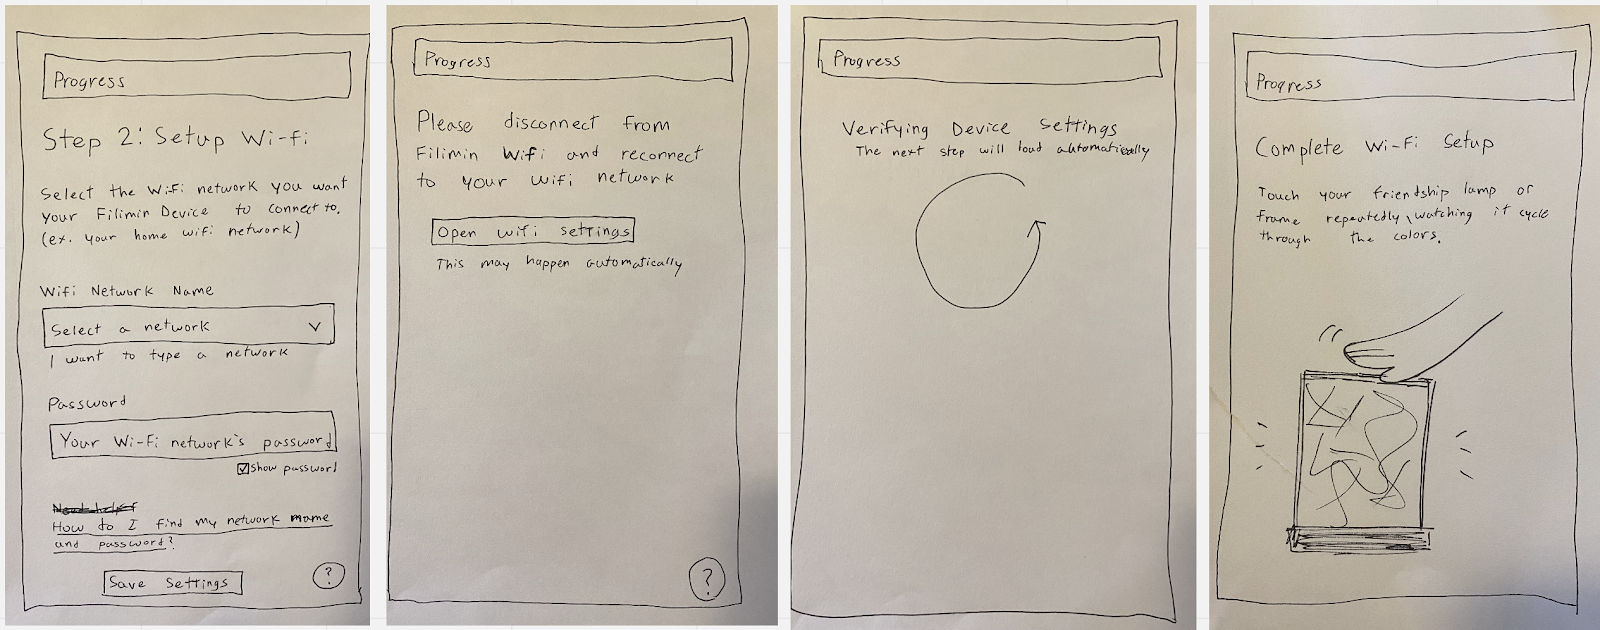 Progress
Step 2: Setup Wi-fi
Select the WiFi network you want
your Filimin Device to connect to.
(ex. your home wifi network)
Wifi Network Name
Select a network
I want to type a network
Password
Your Wi-Fi network's password
Show password
Need help?
How do I find my network name
and password?
Save Settings
?
Progress
Please disconnect from
Filimin Wifi and reconnect
to your wifi network
Open wifi settings
This may happen automatically
?
Progress
Verifying Device Settings
The next step will load automatically
Progress
Complete Wi-Fi Setup
Touch your friendship lamp or
frame repeatedly, watching it cycle
through the colors.